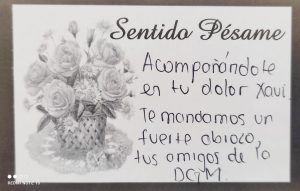 Sentido Pésame
Acompañándote
en tu dolor Xavi.
Te mandamos un
fuerte abrazo,
tus amigos de la
DGIM.